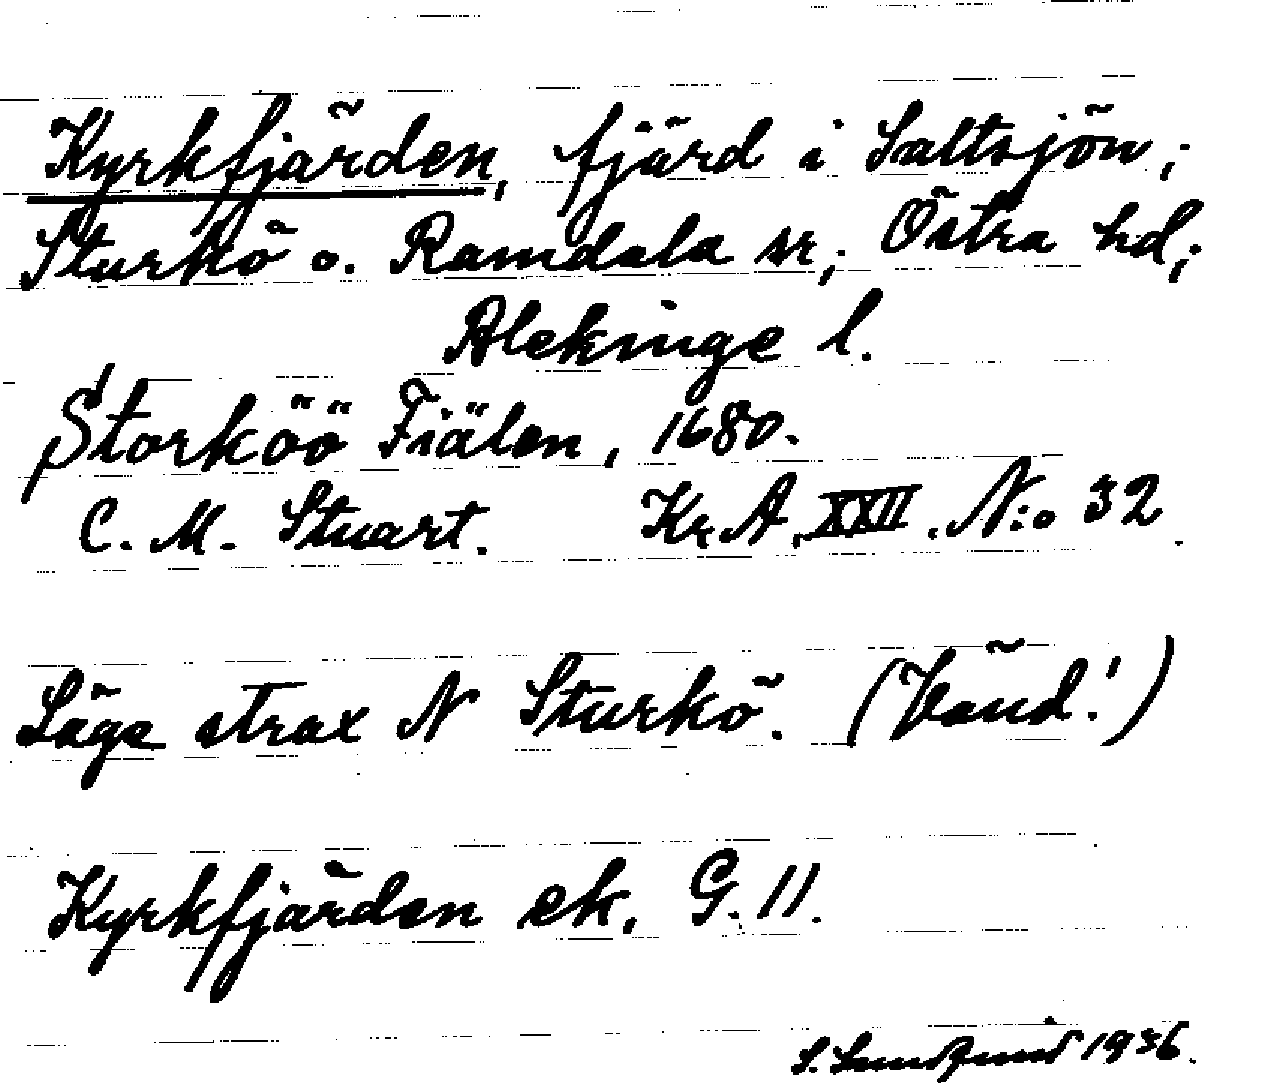 Kyrkfjärden, fjärd i Saltsjön;
Sturkö o. Ramdala sr; Östra hd;
Blekinge l.
Storköö Fiälen, 1680.
C. M. Stuart. Kr. A. XXII. N:o 32.
Läge strax N Sturkö. (Vänd!)
Kyrkfjärden ek. G. 11.
S. 1936.